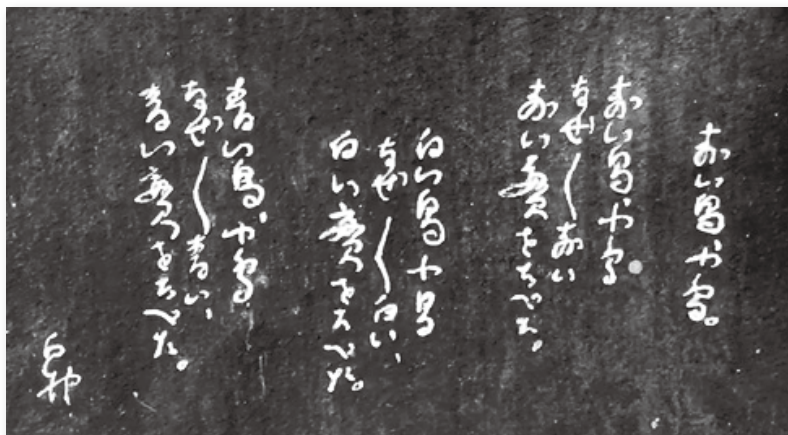 赤い鳥小鳥。
赤い鳥小鳥
なぜ〱赤い
赤い實をたべた。
白い鳥小鳥
なぜ〱白い、
白い實をたべた。
青い鳥小鳥
なぜ〱青い、
青い實をたべた。
白秋